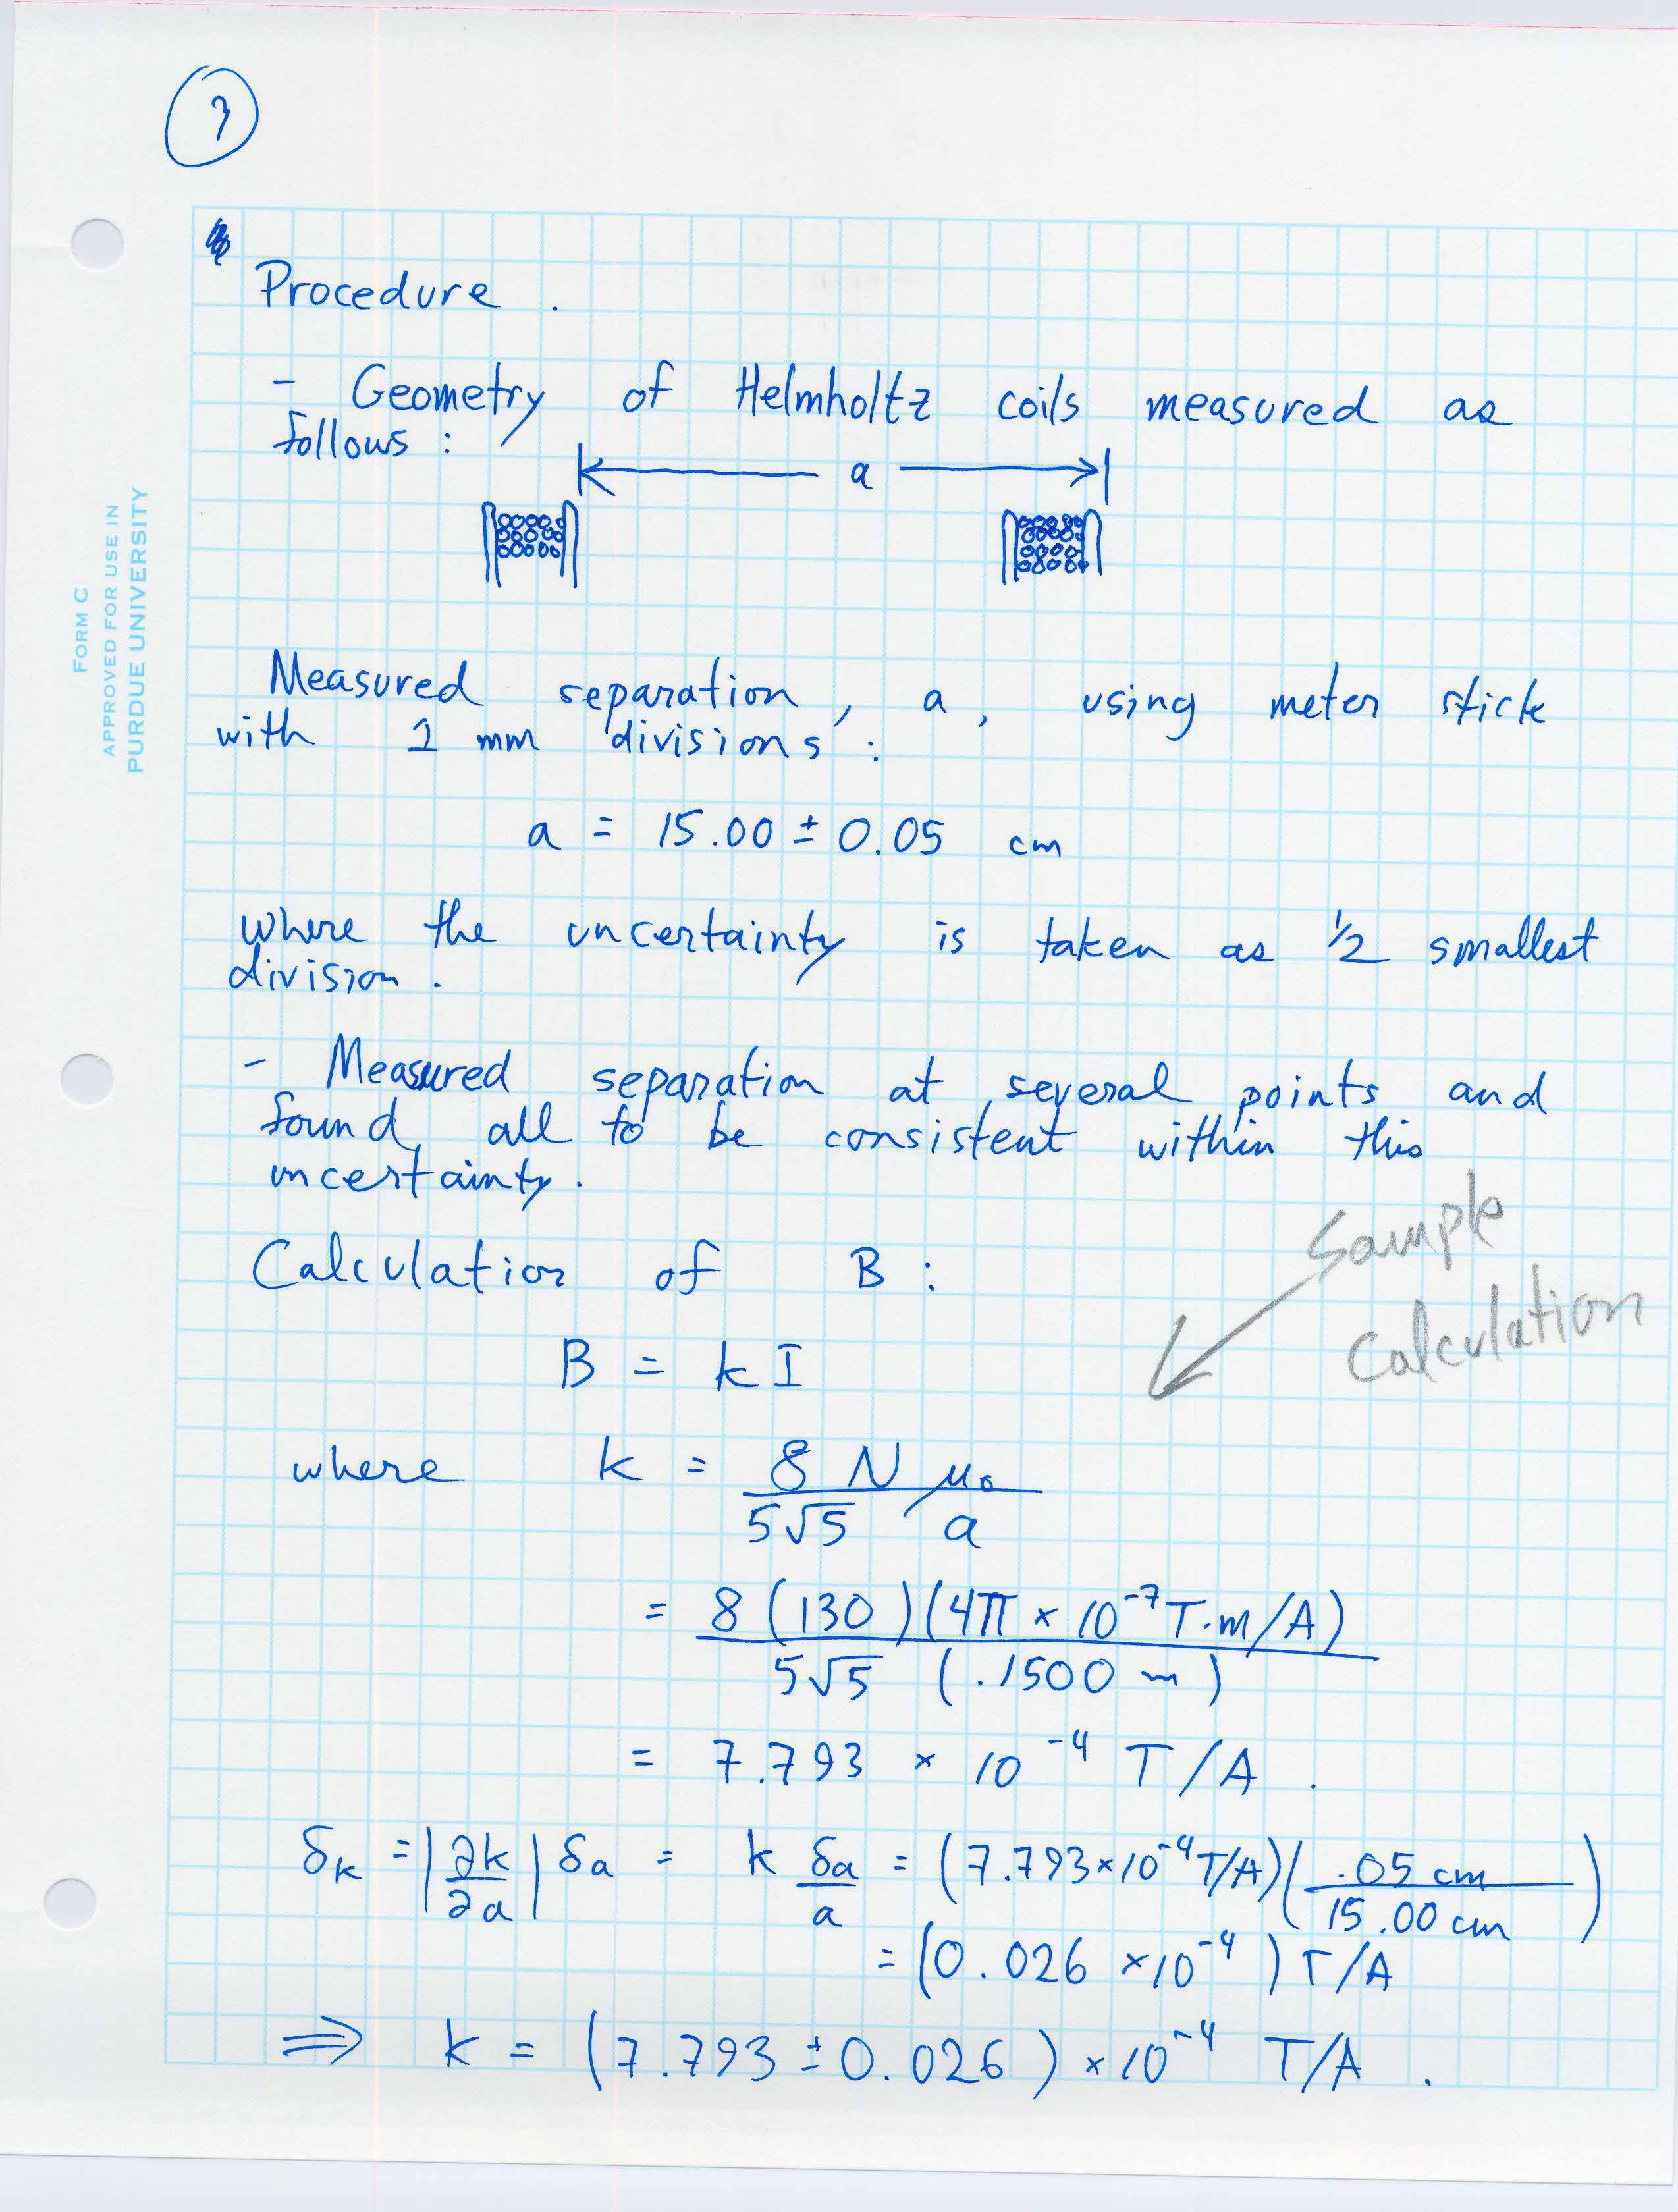 3
Procedure .
- Geometry of Helmholtz coils measured as
follows :
a
Measured separation, a, using meter stick
with 1 mm divisions :
a = 15.00 ± 0.05 cm
where the uncertainty is taken as 1/2 smallest
division .
- Measured separation at several points and
found all to be consistent within this
uncertainty.
Sample
Calculation
Calculation of B :
B = k I
where k = 8 N μ₀
5√5 a
= 8 (130) (4π × 10⁻⁷ T·m/A)
5√5 (.1500 m)
= 7.793 × 10⁻⁴ T/A .
δk = |∂k/∂a| δa = k δa/a = (7.793×10⁻⁴ T/A)(.05 cm/15.00 cm)
= (0.026 ×10⁻⁴) T/A
⇒ k = (7.793 ± 0.026) ×10⁻⁴ T/A .
FORM C
APPROVED FOR USE IN
PURDUE UNIVERSITY